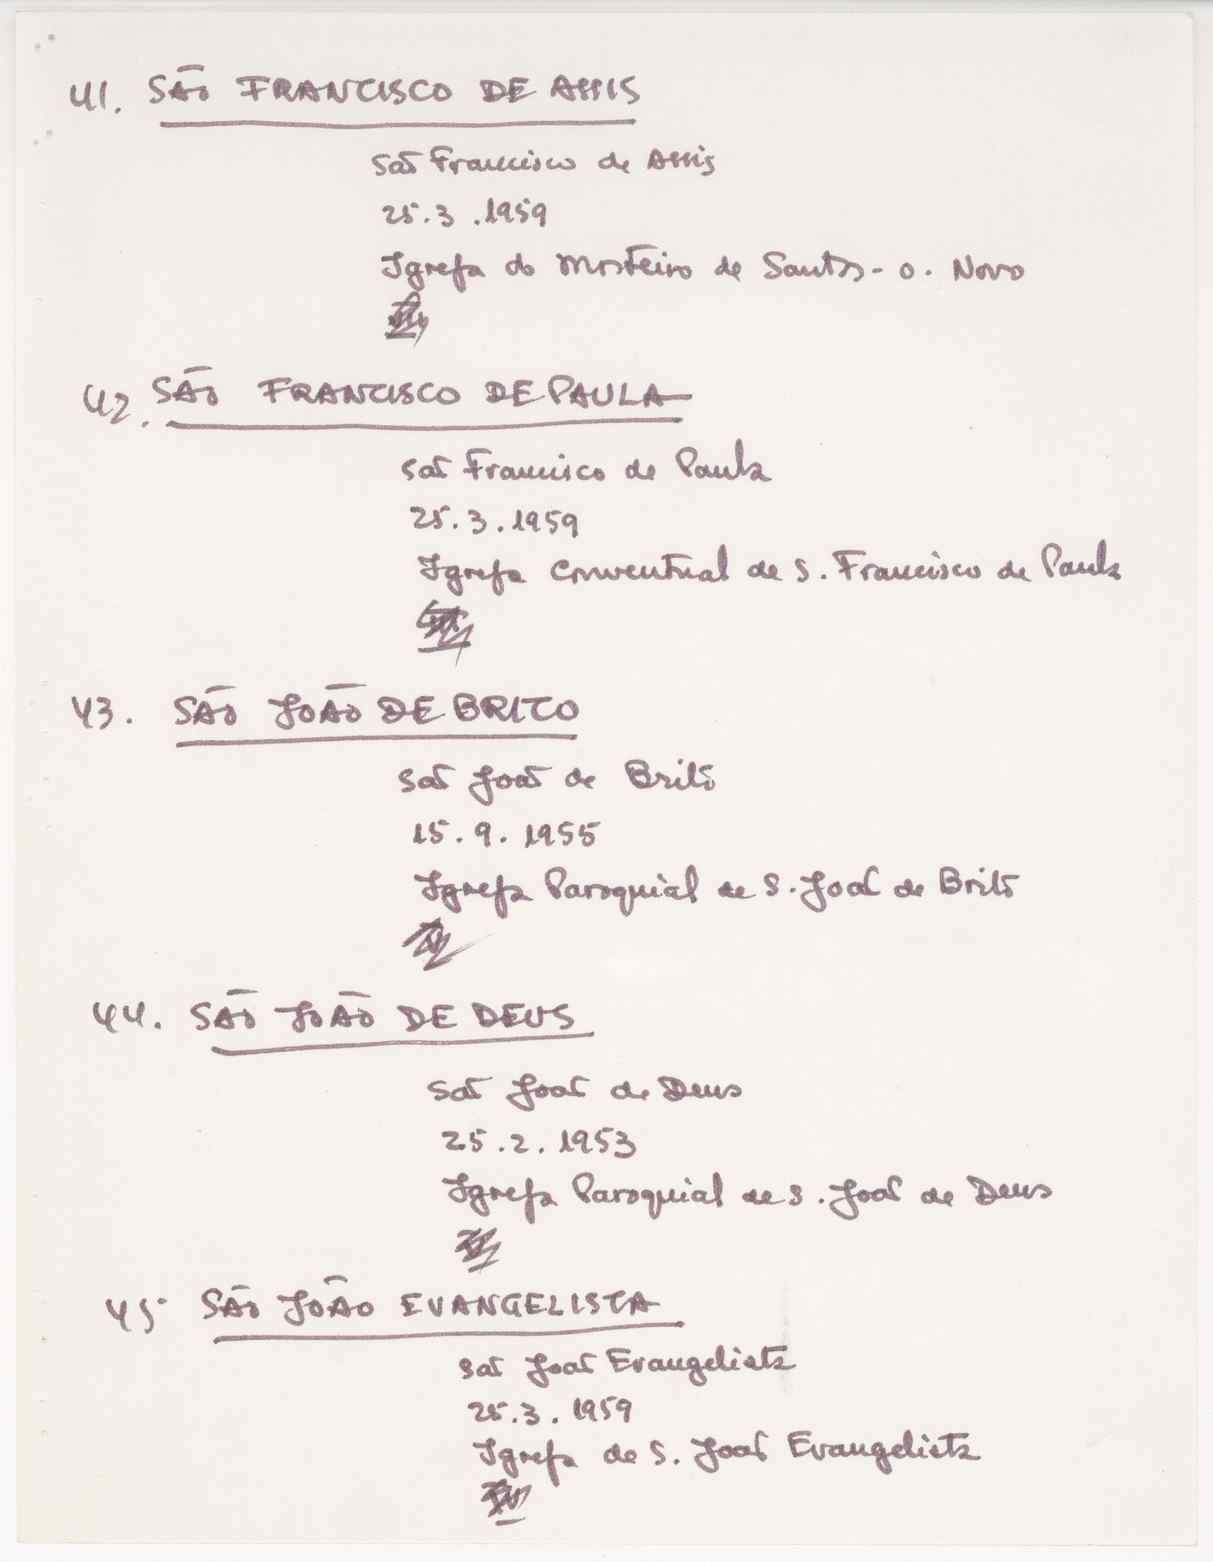 41. SÃO FRANCISCO DE ASSIS
São Francisco de Assis
25.3.1959
Igreja do Mosteiro de Santos-o-Novo
42. SÃO FRANCISCO DE PAULA
São Francisco de Paula
25.3.1959
Igreja Conventual de S. Francisco de Paula
43. SÃO JOÃO DE BRITO
São João de Brito
15.9.1955
Igreja Paroquial de S. João de Brito
44. SÃO JOÃO DE DEUS
São João de Deus
25.2.1953
Igreja Paroquial de S. João de Deus
45 SÃO JOÃO EVANGELISTA
São João Evangelista
25.3.1959
Igreja de S. João Evangelista